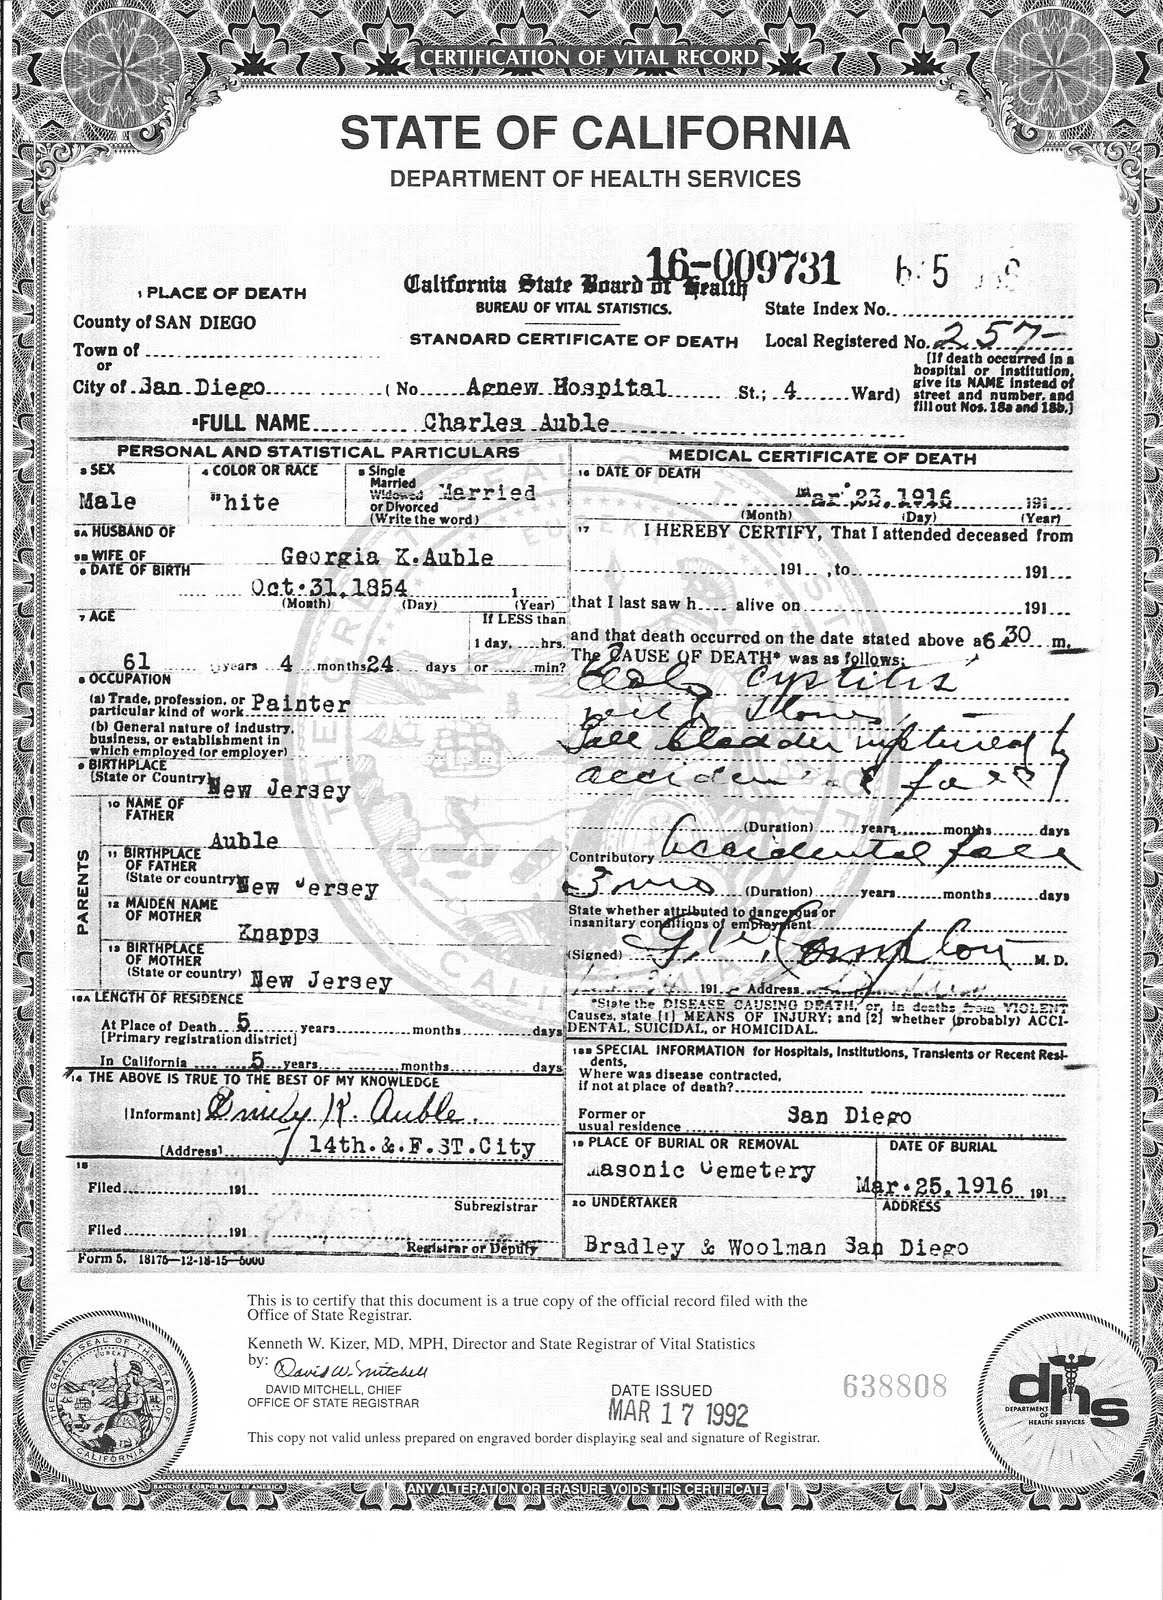 CERTIFICATION OF VITAL RECORD
STATE OF CALIFORNIA
DEPARTMENT OF HEALTH SERVICES
16-009731
1 PLACE OF DEATH
County of SAN DIEGO
Town of
or
City of San Diego
California State Board of Health
BUREAU OF VITAL STATISTICS.
STANDARD CERTIFICATE OF DEATH
State Index No.
Local Registered No. 257
(No. Agnew Hospital St.; 4 Ward)
[If death occurred in a
hospital or institution,
give its NAME instead of
street and number, and
fill out Nos. 18a and 18b.]
2 FULL NAME Charles Auble
PERSONAL AND STATISTICAL PARTICULARS
3 SEX
Male
4 COLOR OR RACE
White
5 Single
Married
Widowed
or Divorced
(Write the word)
Married
5A HUSBAND OF
5B WIFE OF Georgia K.Auble
6 DATE OF BIRTH
Oct.31,1854 1
(Month) (Day) (Year)
7 AGE
61 years 4 months 24 days
If LESS than
1 day, hrs.
or min?
8 OCCUPATION
(a) Trade, profession, or
particular kind of work Painter
(b) General nature of industry,
business, or establishment in
which employed (or employer)
9 BIRTHPLACE
(State or Country) New Jersey
PARENTS
10 NAME OF
FATHER
Auble
11 BIRTHPLACE
OF FATHER
(State or country) New Jersey
12 MAIDEN NAME
OF MOTHER
Knapps
13 BIRTHPLACE
OF MOTHER
(State or country) New Jersey
18A LENGTH OF RESIDENCE
At Place of Death 5 years months days
[Primary registration district]
In California 5 years months days
14 THE ABOVE IS TRUE TO THE BEST OF MY KNOWLEDGE
[Informant] Emily K. Auble.
(Address) 14th.&.F.ST.City
15
Filed 191
Subregistrar
Filed 191
Registrar or Deputy
Form 5. 18175-12-18-15-5000
MEDICAL CERTIFICATE OF DEATH
16 DATE OF DEATH
Mar 23,1916 191
(Month) (Day) (Year)
17 I HEREBY CERTIFY, That I attended deceased from
191 , to 191
that I last saw h alive on 191
and that death occurred on the date stated above at 6 30 m.
The CAUSE OF DEATH* was as follows:
cystitis
with stones,
Gall bladder ruptured by
accidental fall
(Duration) years months days
Contributory Accidental fall
3 mos (Duration) years months days
State whether attributed to dangerous or
insanitary conditions of employment
(Signed) Compton M. D.
191 Address
*State the DISEASE CAUSING DEATH, or, in deaths from VIOLENT
Causes, state [1] MEANS OF INJURY; and [2] whether (probably) ACCI-
DENTAL, SUICIDAL, or HOMICIDAL.
18B SPECIAL INFORMATION for Hospitals, Institutions, Transients or Recent Resi-
dents,
Where was disease contracted,
if not at place of death?
Former or
usual residence San Diego
19 PLACE OF BURIAL OR REMOVAL
Masonic Cemetery
DATE OF BURIAL
Mar.25,1916 191
20 UNDERTAKER
Bradley & Woolman
ADDRESS
San Diego
This is to certify that this document is a true copy of the official record filed with the
Office of State Registrar.
Kenneth W. Kizer, MD, MPH, Director and State Registrar of Vital Statistics
by: David W. Mitchell
DAVID MITCHELL, CHIEF
OFFICE OF STATE REGISTRAR
DATE ISSUED
MAR 17 1992
638808
This copy not valid unless prepared on engraved border displaying seal and signature of Registrar.
THE GREAT SEAL OF THE STATE OF CALIFORNIA
EUREKA
dhs
DEPARTMENT
OF
HEALTH SERVICES
BANKNOTE CORPORATION OF AMERICA
ANY ALTERATION OR ERASURE VOIDS THIS CERTIFICATE